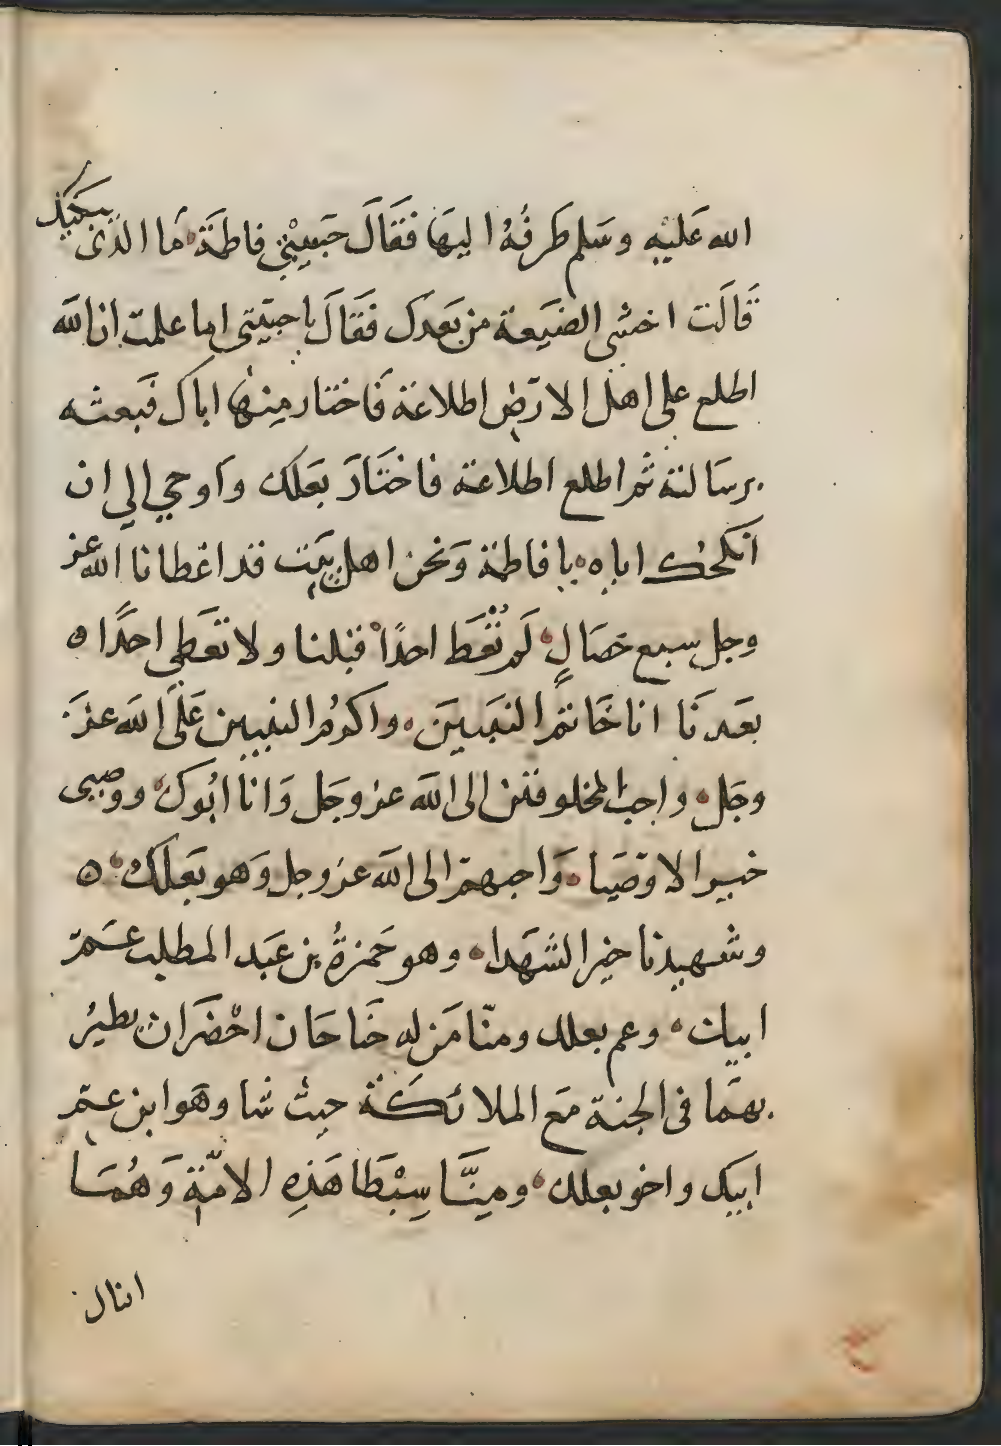 الله عَليْهِ وسَلم طَرفُهُ اليهَا فقَالَ حَبيبتي فاطمَة مَا الذى يبكيك
قالَت اخشى الضيَعة من بَعدك فقَالَ يا حبيَبتى اما علمت ان الله
اطلع على اهل الارَض اطلاعة فَاختار مِنهَا اباك فبَعثه
برسَالته ثم اطلع اطلاعة فاختَارَ بَعلك وَاوحي الي ان
انكحُك اياه يا فاطمة وَنحن اهل بيَت قد اعَطانا الله عز
وجل سبع خصَالٍ لَم تُعَط احدًا قبلنا ولا تعَطى احدًا ه
بعَدنَا انا خَاتم النبَيين واكرمُ النبيين عَلَى الله عزَ
وجَل واحب المخلوقين الى الله عز وجَل وَانا ابُوك ووصيى
خير الاوَصيَا وَاحبهم الى الله عز وجل وَهو بعَلك ه
وشهيدنا خير الشهَدا وهو حَمزةُ بن عبَد المطلب عَم
ابيك وعم بعلك ومنّا مَن له جنَاحَان اخْضَران يطيرُ
بهمَا فى الجنة مَع الملائكَة حيث شا وهَو ابن عم
ابيك واخو بعلك ومِنَّا سِبْطَا هَذِهِ الامّة وَهُمَا
ابنال